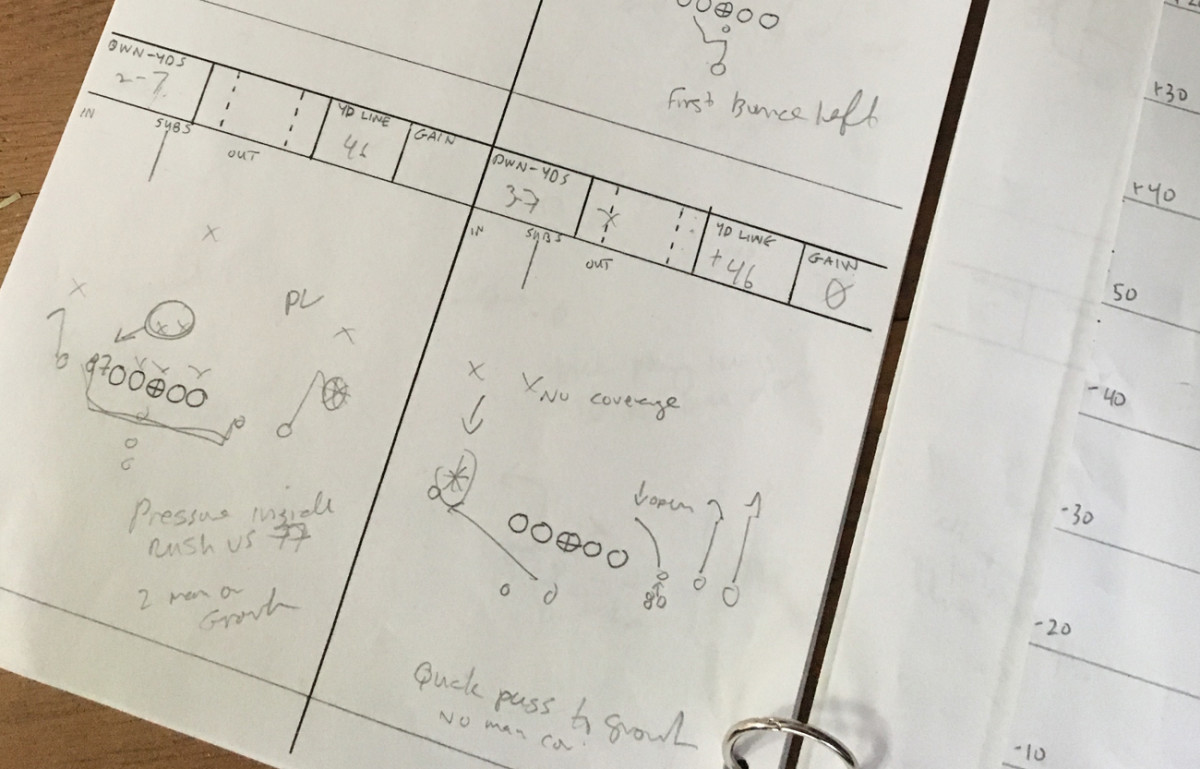 First Bunce Left
DWN-YDS
2-7
YD LINE
46
GAIN
IN
SUBS
OUT
PL
97
Pressure inside
Rush vs 77
2 man on
Growth
DWN-YDS
3-7
YD LINE
+46
GAIN
0
IN
SUBS
OUT
No coverage
open
80
Quck pass to Growth
No man cov.
+30
+40
50
-40
-30
-20
-10